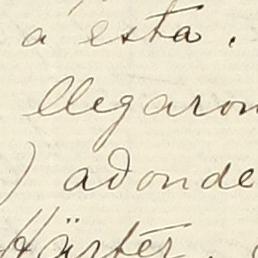 á esta.
llegaron
) adonde
Härtér.